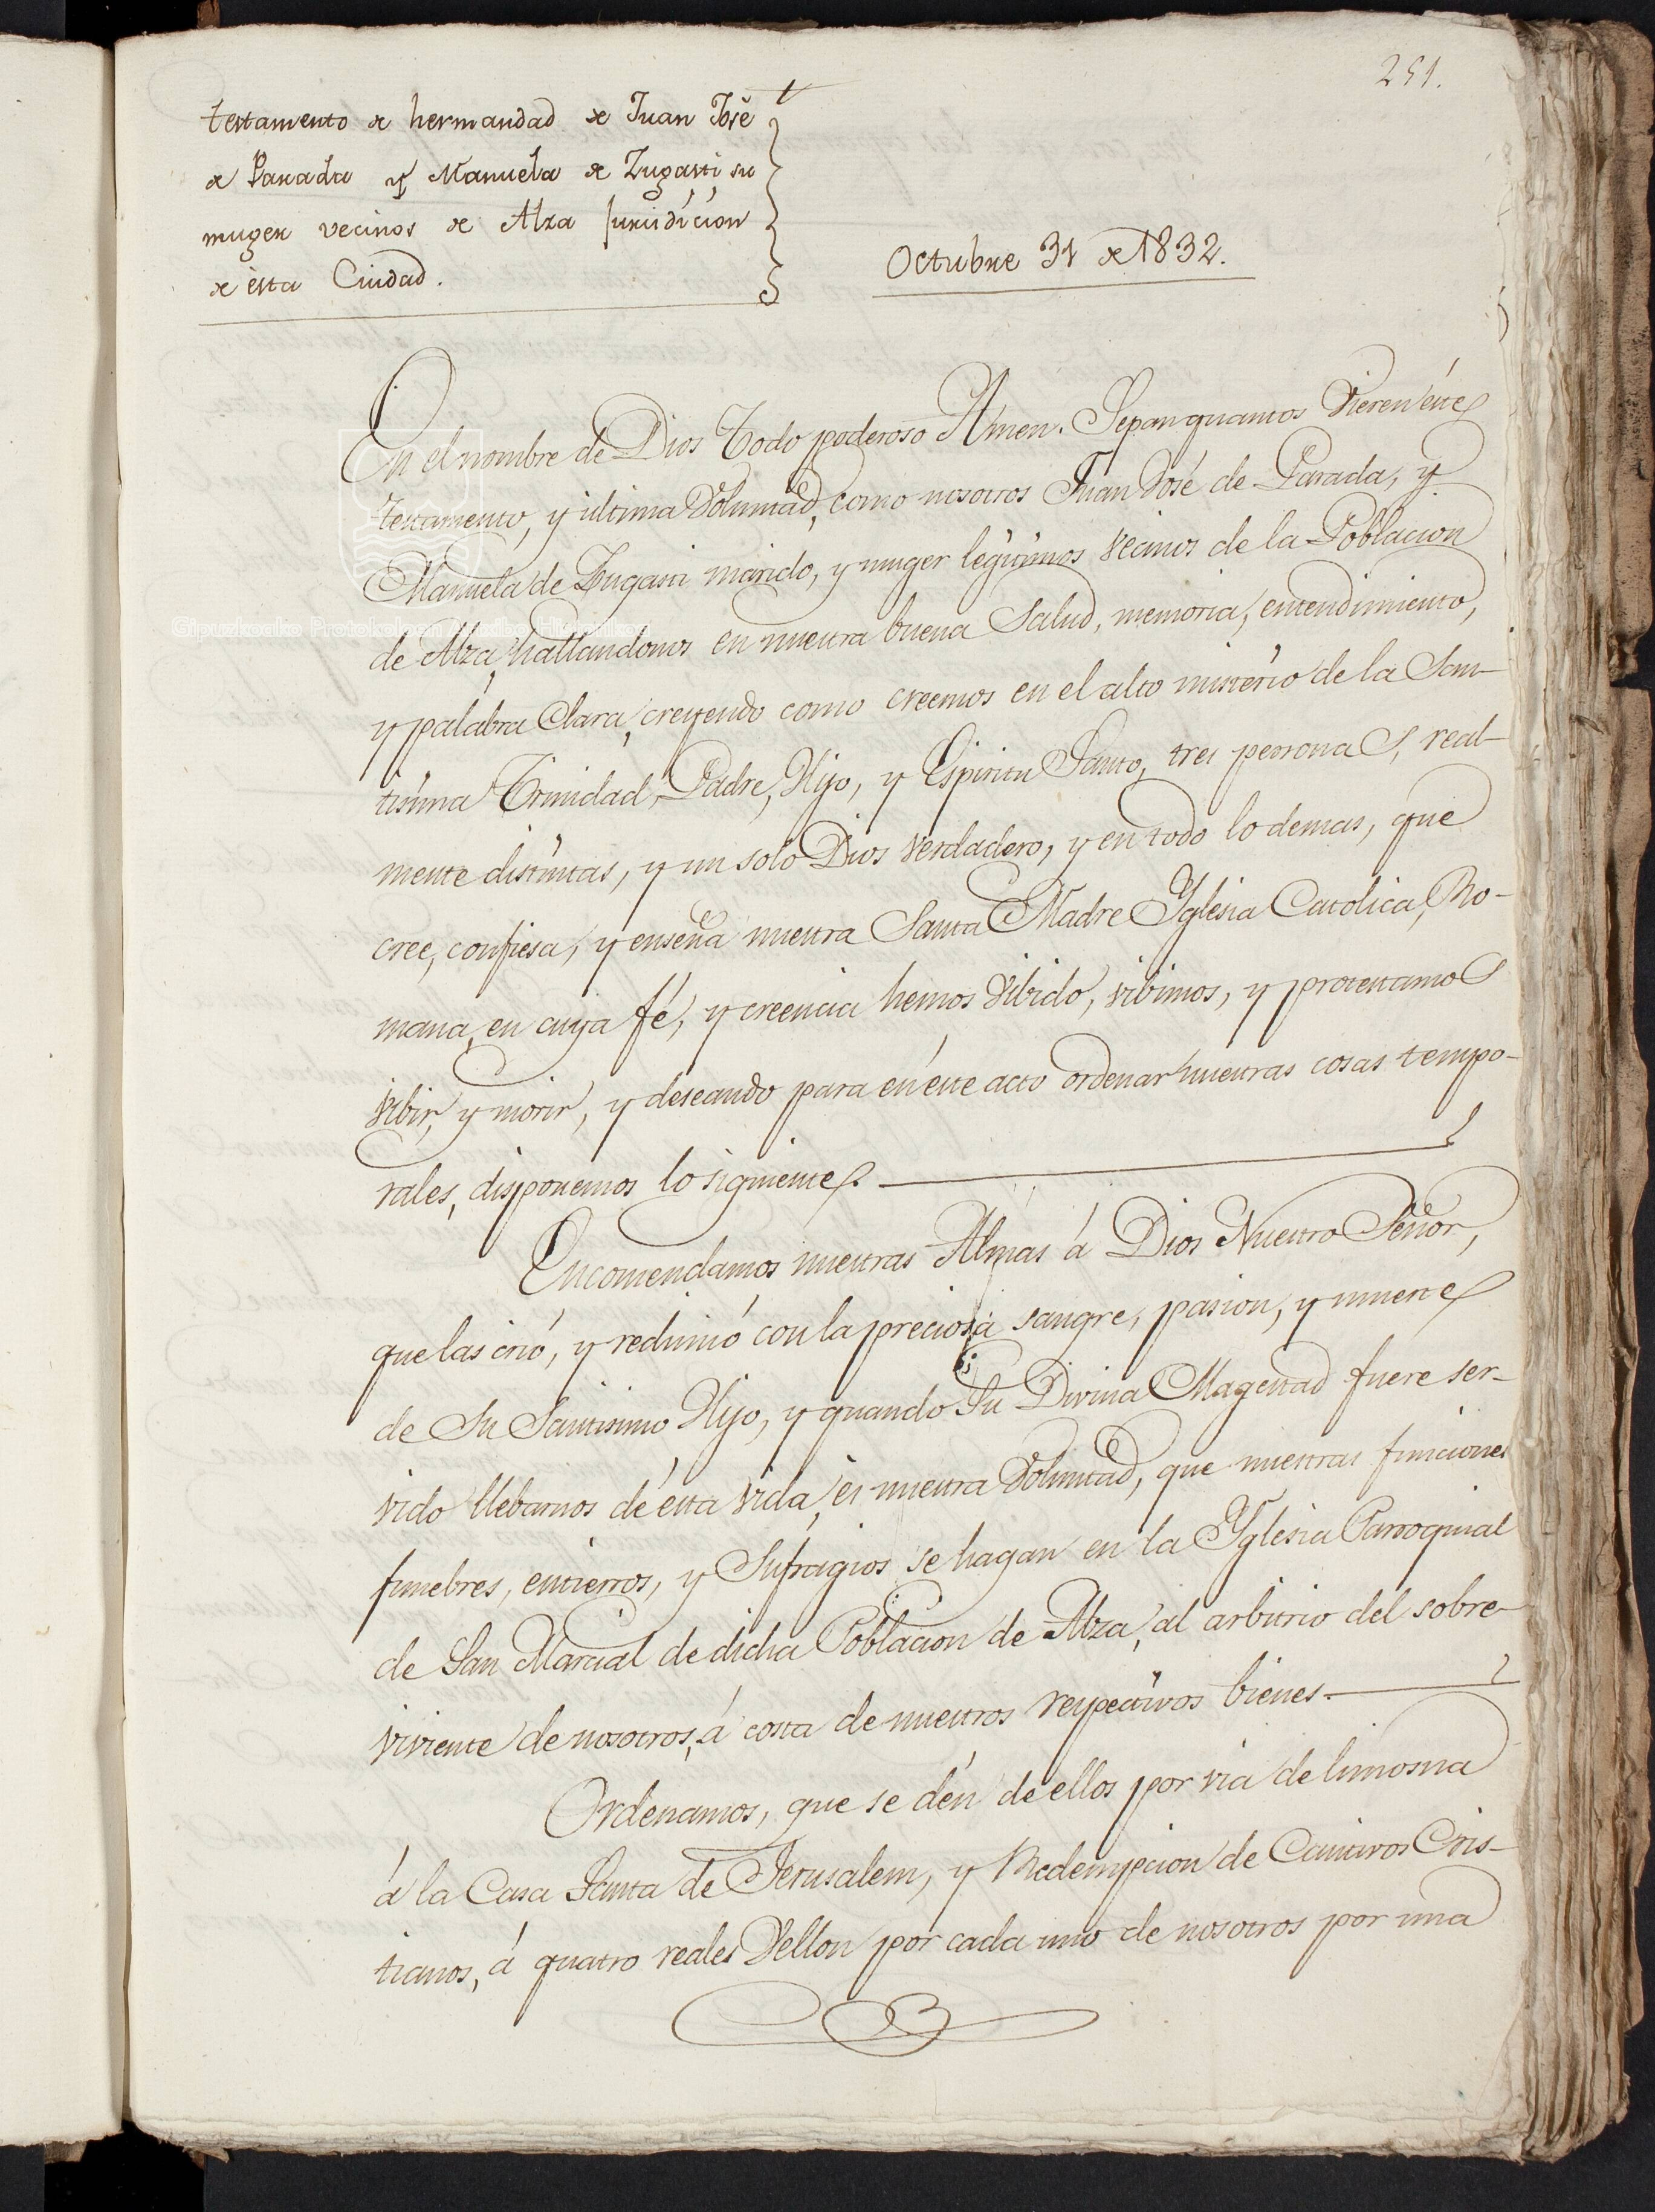 251.
testamento de hermandad de Juan José
de Parada y Manuela de Zugasti su
muger vecinos de Alza jurisdicion
de ésta Ciudad.
Octubre 31 de 1832.
En el nombre de Dios Todo poderoso Amen. Sepan quantos vieren éste
testamento, y ultima Voluntad, como nosotros Juan José de Parada, y
Manuela de Zugasti marido, y muger legítimos vecinos de la Poblacion
de Alza, hallandonos en nuestra buena Salud, memoria, entendimiento,
y palabra Clara, creyendo como creemos en el alto misterio de la San-
tisima Trinidad, Padre, Hijo, y Espiritu Santo, tres personas, real-
mente distintas, y un solo Dios verdadero, y en todo lo demas, que
cree, confiesa, y enseña nuestra Santa Madre Yglesia Catolica, Ro-
mana, en cuya fé, y creencia hemos vibido, vibimos, y protestamos
vibir, y morir, y deseando para en éste acto ordenar nuestras cosas tempo-
rales, disponemos lo siguiente.
Encomendamos nuestras Almas á Dios Nuestro Señor,
que las crió, y redimió con la preciosa sangre, pasion, y muerte
de Su Santisimo Hijo, y quando Su Divina Magestad fuere ser-
vido llebarnos de ésta vida, es nuestra Voluntad, que nuestras funciones
funebres, entierros, y Sufragios se hagan en la Yglesia Parroquial
de San Marcial de dicha Poblacion de Alza, al arbitrio del sobre-
viviente de nosotros, á costa de nuestros respectivos bienes.
Ordenamos, que se dén de ellos por via de limosna
á la Casa Santa de Jerusalem, y Redempcion de Cautivos Cris-
tianos, á quatro reales Vellon por cada uno de nosotros por una
Gipuzkoako Protokoloen Artxibo Historikoa